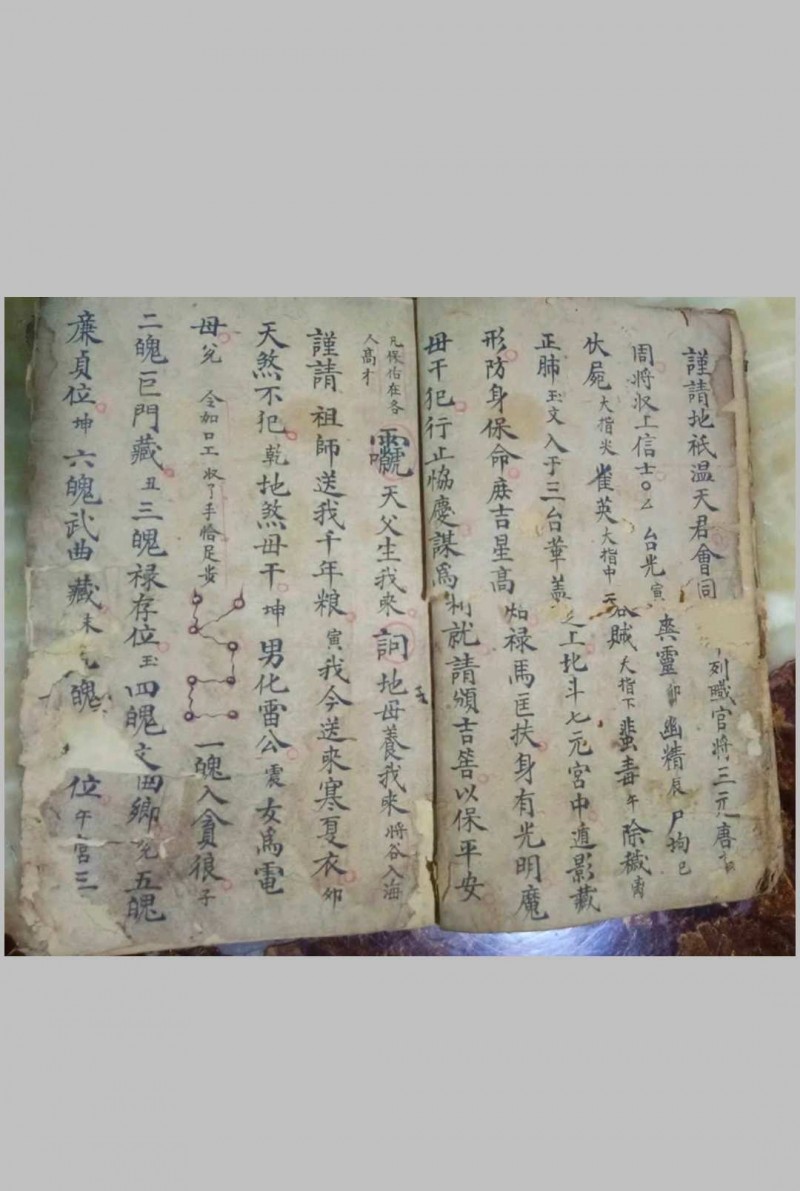 謹請地祇温天君會同列職官將三元唐
周將収上信士○厶 台光寅爽靈卯幽精辰尸狗巳
伏屍大指尖雀英大指中吞賊大指下蜚毒午除穢
正肺玉文入于三台華盖之上北斗七元宮中遁影藏
形防身保命庻吉星高炤禄馬匡扶身有光明魔
毋干犯行止恊慶謀爲利就請頒吉筶以保平安
凡保佑在各
人高才
天父生我來 詞 地母養我來 將谷入海
謹請 祖師送我千年粮寅我今送來寒夏衣卯
天煞不犯乾地煞毋干坤男化雷公震女爲電
母兊 令如口工 収了手恰足步 一魄入貪狼子
二魄巨門藏丑三魄禄存位玉四魄文曲鄉兊五魄
廉貞位坤六魄武曲藏未魄位午宮三